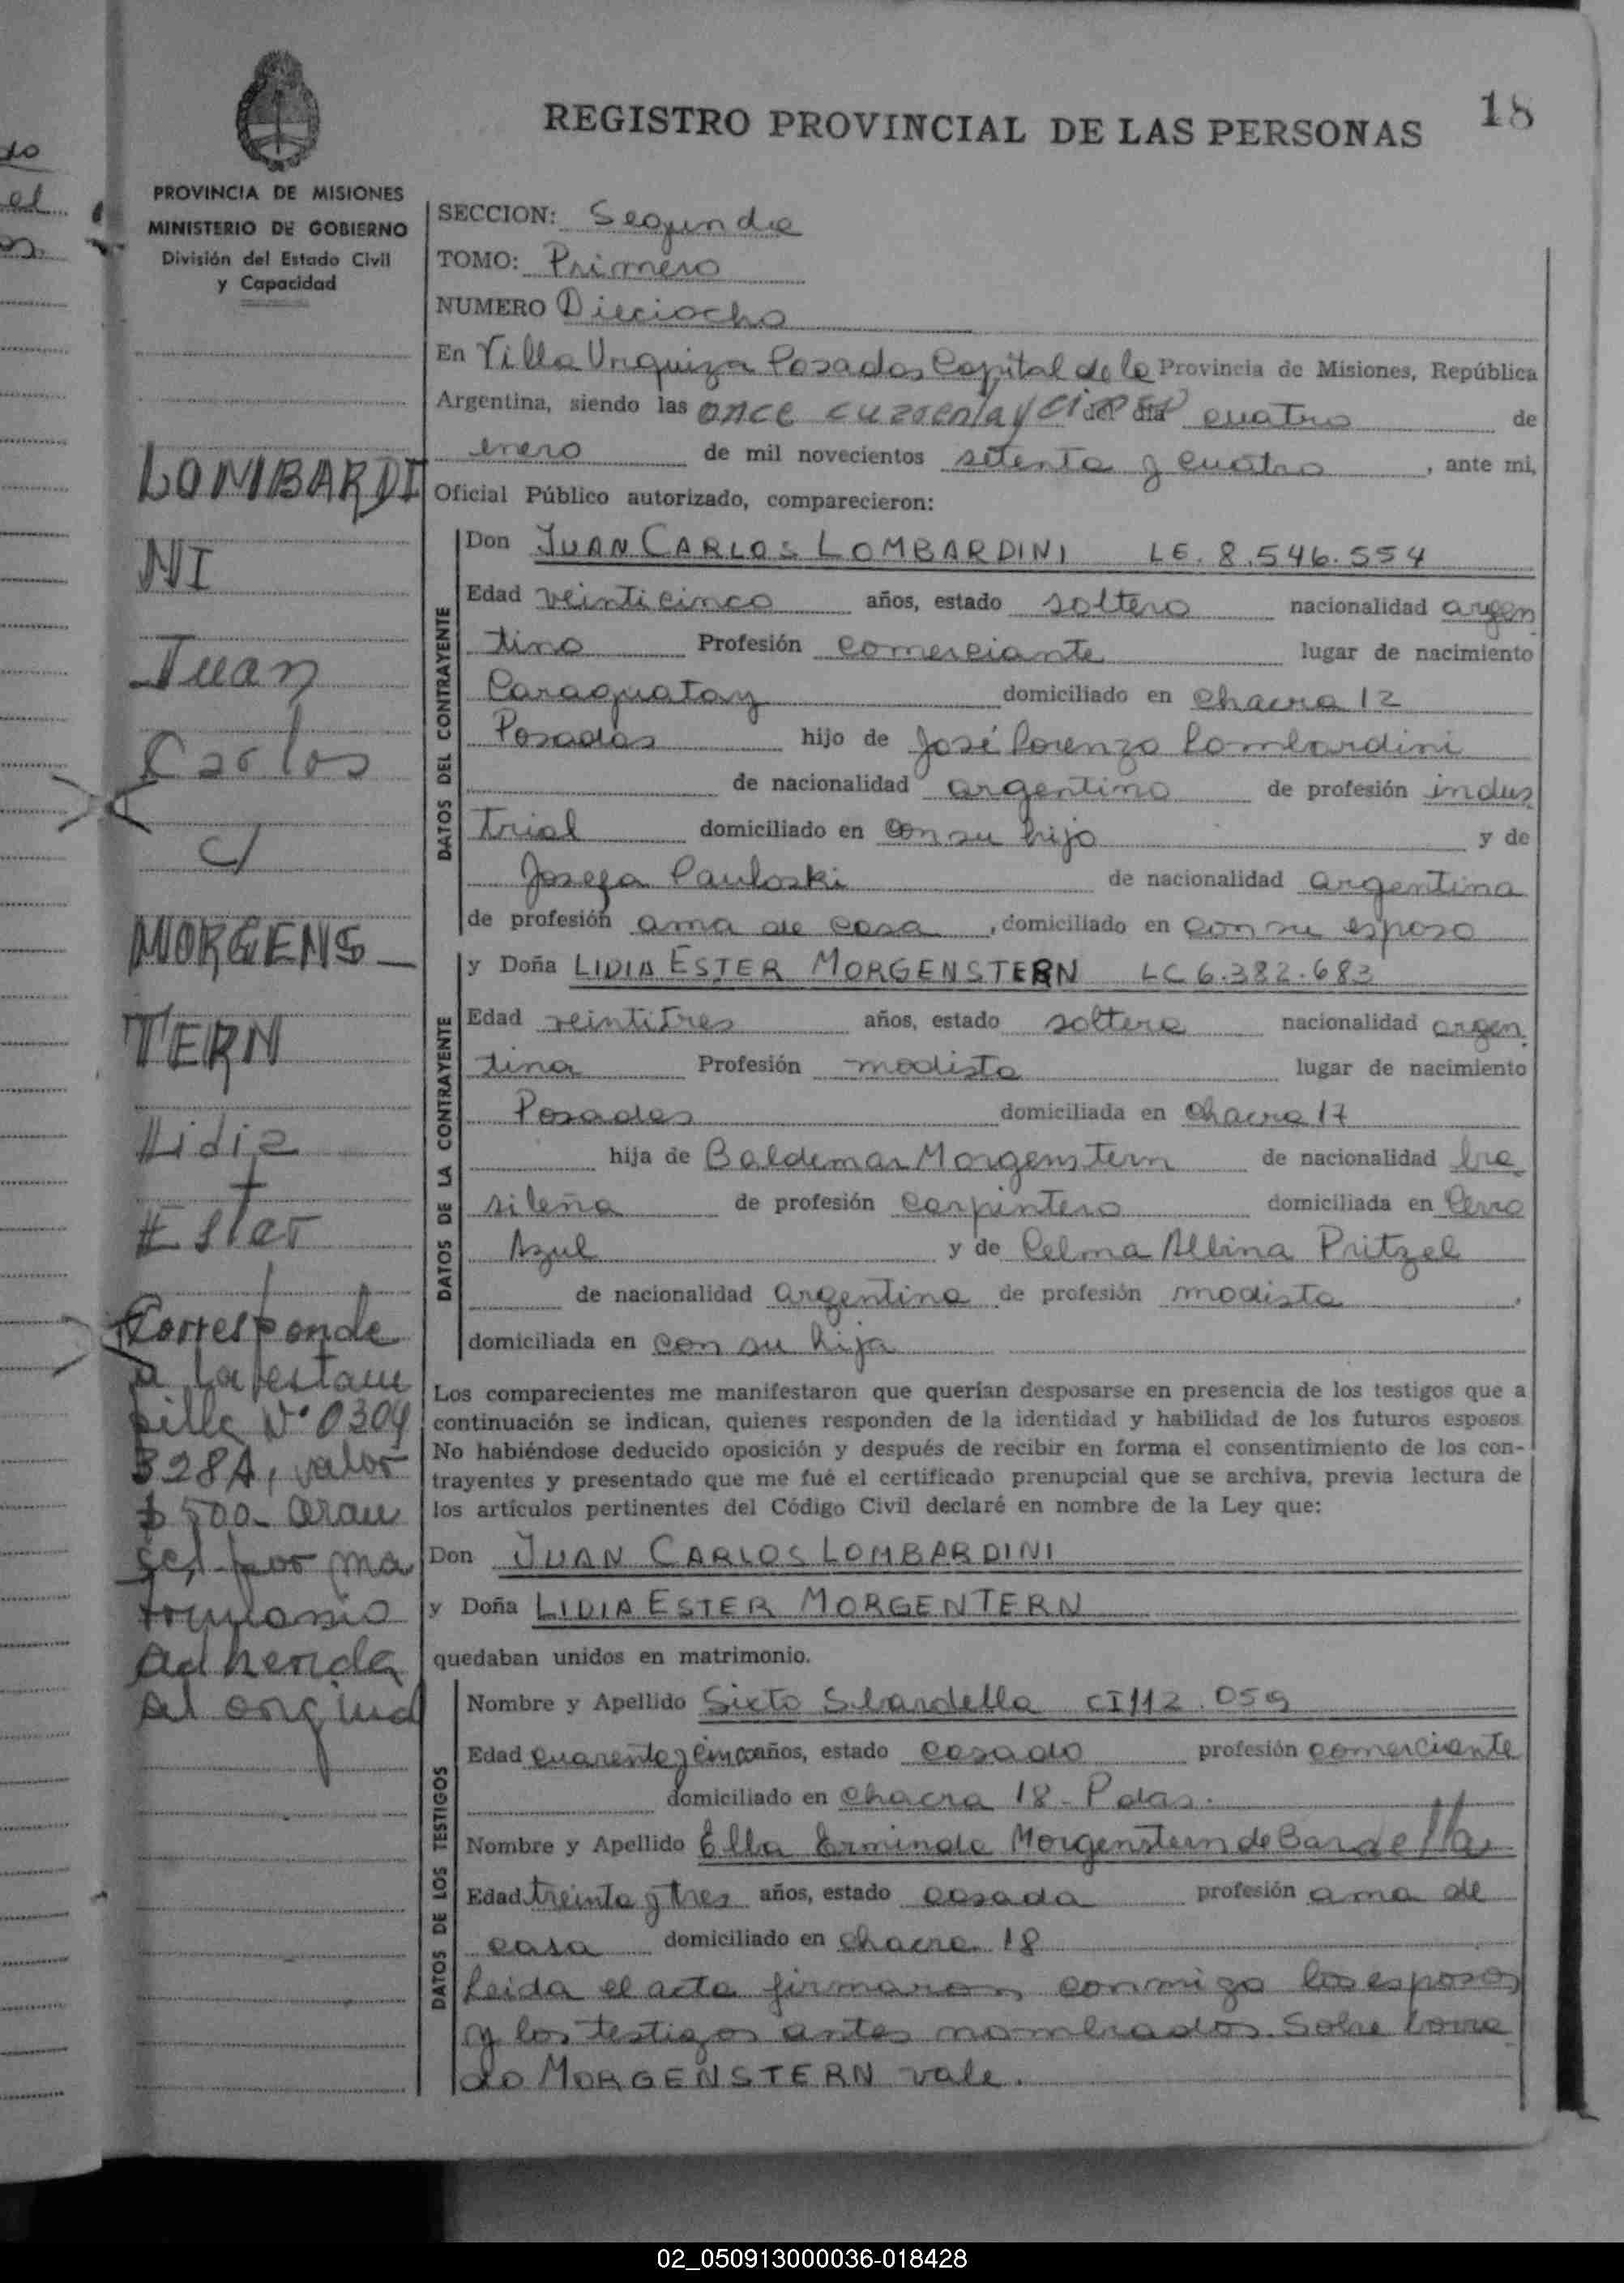 REGISTRO PROVINCIAL DE LAS PERSONAS
18
PROVINCIA DE MISIONES
MINISTERIO DE GOBIERNO
División del Estado Civil
y Capacidad
LOMBARDI
NI
Juan
Carlos
c/
MORGENS_
TERN
Lidia
Ester
Corresponde
a la estam
pilla Nº 0304
328A, valor
$ 500.- aran
cel por ma
trimonio
adherida
al original
SECCION: Segunda
TOMO: Primero
NUMERO Dieciocho
En Villa Urquiza Posadas Capital de la Provincia de Misiones, República
Argentina, siendo las once cuarenta y cinco del día cuatro de
enero de mil novecientos setenta y cuatro, ante mi,
Oficial Público autorizado, comparecieron:
DATOS DEL CONTRAYENTE
Don JUAN CARLOS LOMBARDINI LE. 8.546.554
Edad veinticinco años, estado soltero nacionalidad argen
tino Profesión comerciante lugar de nacimiento
Caraguatay domiciliado en chacra 12
Posadas hijo de José Lorenzo Lombardini
de nacionalidad argentino de profesión indus
trial domiciliado en con su hijo y de
Josefa Pauloski de nacionalidad argentina
de profesión ama de casa, domiciliado en con su esposo
DATOS DE LA CONTRAYENTE
y Doña LIDIA ESTER MORGENSTERN LC 6.382.683
Edad veintitres años, estado soltera nacionalidad argen
tina Profesión modista lugar de nacimiento
Posadas domiciliada en chacra 17
hija de Baldemar Morgenstern de nacionalidad bra
sileña de profesión carpintero domiciliada en Cerro
Azul y de Celma Albina Pritzel
de nacionalidad argentina de profesión modista,
domiciliada en con su hija
Los comparecientes me manifestaron que querían desposarse en presencia de los testigos que a
continuación se indican, quienes responden de la identidad y habilidad de los futuros esposos
No habiéndose deducido oposición y después de recibir en forma el consentimiento de los con-
trayentes y presentado que me fué el certificado prenupcial que se archiva, previa lectura de
los artículos pertinentes del Código Civil declaré en nombre de la Ley que:
Don JUAN CARLOS LOMBARDINI
y Doña LIDIA ESTER MORGENTERN
quedaban unidos en matrimonio.
DATOS DE LOS TESTIGOS
Nombre y Apellido Sixto Sbardella CI 112.059
Edad cuarenta y cinco años, estado casado profesión comerciante
domiciliado en chacra 18 - Pdas.
Nombre y Apellido Ella Erminda Morgenstern de Bardella
Edad treinta y tres años, estado casada profesión ama de
casa domiciliado en chacra 18
Leida el acta firmaron conmigo los esposos
y los testigos antes nombrados. Sobre borra
do MORGENSTERN vale.
02_050913000036-018428